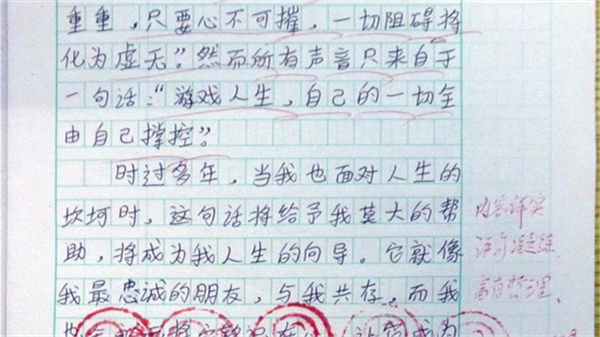 重重，只要心不可摧，一切阻碍将
化为虚无”。然而所有声音只来自于
一句话：“游戏人生，自己的一切全
由自己撑控”。
时过多年，当我也面对人生的
坎坷时，这句话将给予我莫大的帮
助，将成为我人生的向导。它就像
我最忠诚的朋友，与我共存，而我
内容详实
语句
富有哲理。